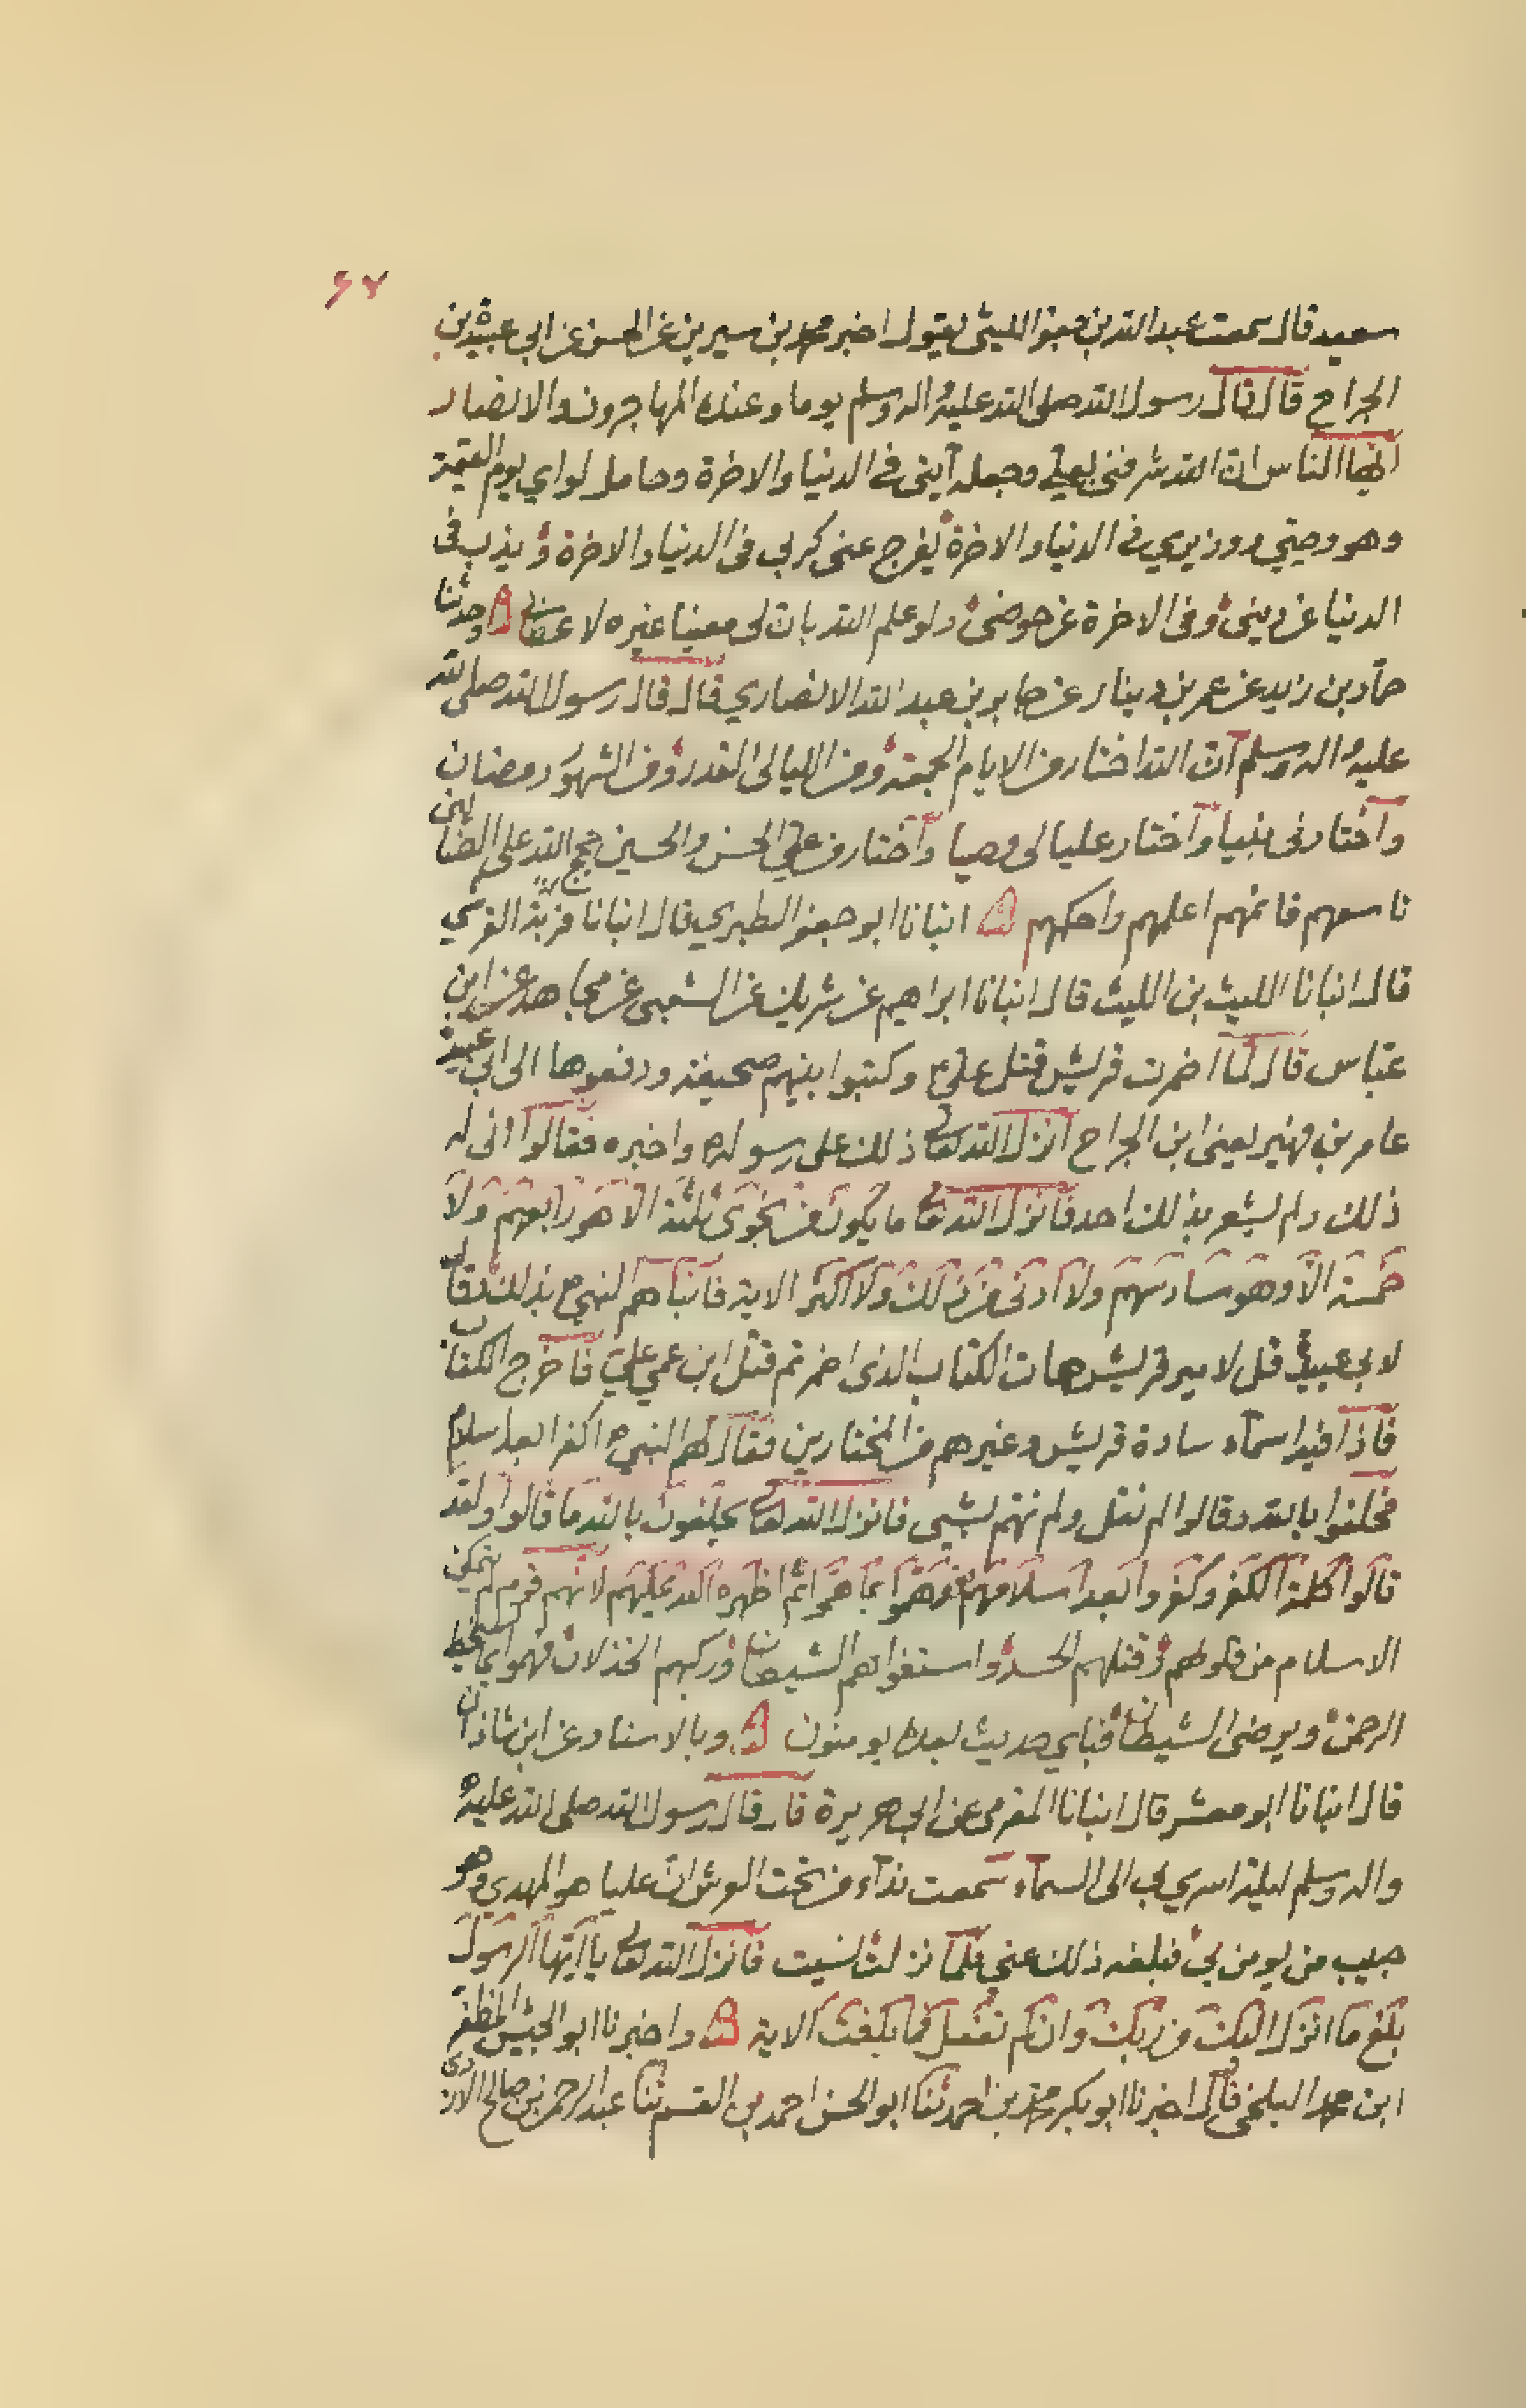 ٦٧
سعيد قال سمعت عبد الله بن جعفر الليثى يقول اخبر محمد بن سيرين عن الحسن عن ابى عبيدة بن
الجراح قال قال رسول الله صلى الله عليه واله وسلم يوما وعنده المهاجرون والانصار
ايها الناس ان الله شرفنى بعلى وجعله آيتى فى الدنيا والاخرة وحامل لوآي يوم القيمة
وهو وصيتي ووزيري فى الدنيا والاخرة يفرج عنى كربى فى الدنيا والاخرة ويذب فى
الدنيا عن دينى وفى الاخرة عن حوضى ولو علم الله بان لى معينا غيره لا عطانى وحدثنا
حماد بن زيد عن عمر بن دينار عن جابر بن عبد الله الانصاري قال قال رسول الله صلى الله
عليه واله وسلم ان الله اختار من الايام الجمعة ومن الليالى القدر ومن الشهور رمضان
واختارنى نبيا واختار عليا لى وصيا واختار من علي الحسن والحسين حجج الله على العالمين
تاسعهم قائمهم اعلمهم واحكمهم انبانا ابو جعفر الطبري قال انبانا القرشي
قال انبانا الليث بن الليث قال انبانا ابراهيم عن شريك عن الشعبى عن مجاهد عن ابن
عباس قال لما اضمرت قريش قتل علي وكتبوا بينهم صحيفة ودفعوها الى ابى عبيدة
عامر بن فهير يعنى ابن الجراح انزل الله تعالى ذلك على رسوله واخبره فقالوا انى له
ذلك ولم يشعر بذلك احد فانزل الله تعالى ما يكون من نجوى ثلثة الا هو رابعهم ولا
خمسة الا وهو سادسهم ولا ادنى من ذلك ولا اكثر الاية فانباهم النبي بذلك وقال
لابى عبيدة قل لامير قريش هات الكتاب الذى اضمرتم قتل ابن عمي علي فاخرج الكتاب
فاذا فيه اسمآء سادة قريش وغيرهم من المختارين فقال لهم النبي اكفرا بعد اسلام
فحلفوا بالله وقالوا لم نقتل ولم نهم بشيى فانزل الله تعالى يحلفون بالله ما قالوا ولقد
قالوا كلمة الكفر وكفروا بعد اسلامهم وهموا بما هموا ثم اظهره الله عليهم لانهم قوم لم يتمكن
الاسلام من قلوبهم وقتلهم الحسد واستغواهم الشيطان وركبهم الخذلان فهموا بما يسخط
الرحمن ويرضى الشيطان فباي حديث بعده يومنون وبالاسناد عن ابن شاذان
قال انبانا ابو معشر قال انبانا المقرى عن ابى هريرة قال قال رسول الله صلى الله عليه
واله وسلم ليلة اسري بى الى السمآء سمعت ندآء من تحت العرش ان عليا هو المهدي وهو
حبيب من يومن بى فبلغه ذلك عني فلما نزلت انسيت فانزل الله تعالى يا ايها الرسول
بلغ ما انزل اليك من ربك وان لم تفعل فما بلغت الاية واخبرنا ابو الجيش المظفر
ابن محمد البلخى قال اخبرنا ابو بكر محمد بن احمد ثنا ابو الحسن احمد بن القسم ثنا عبد الرحمن بن صالح الازدى